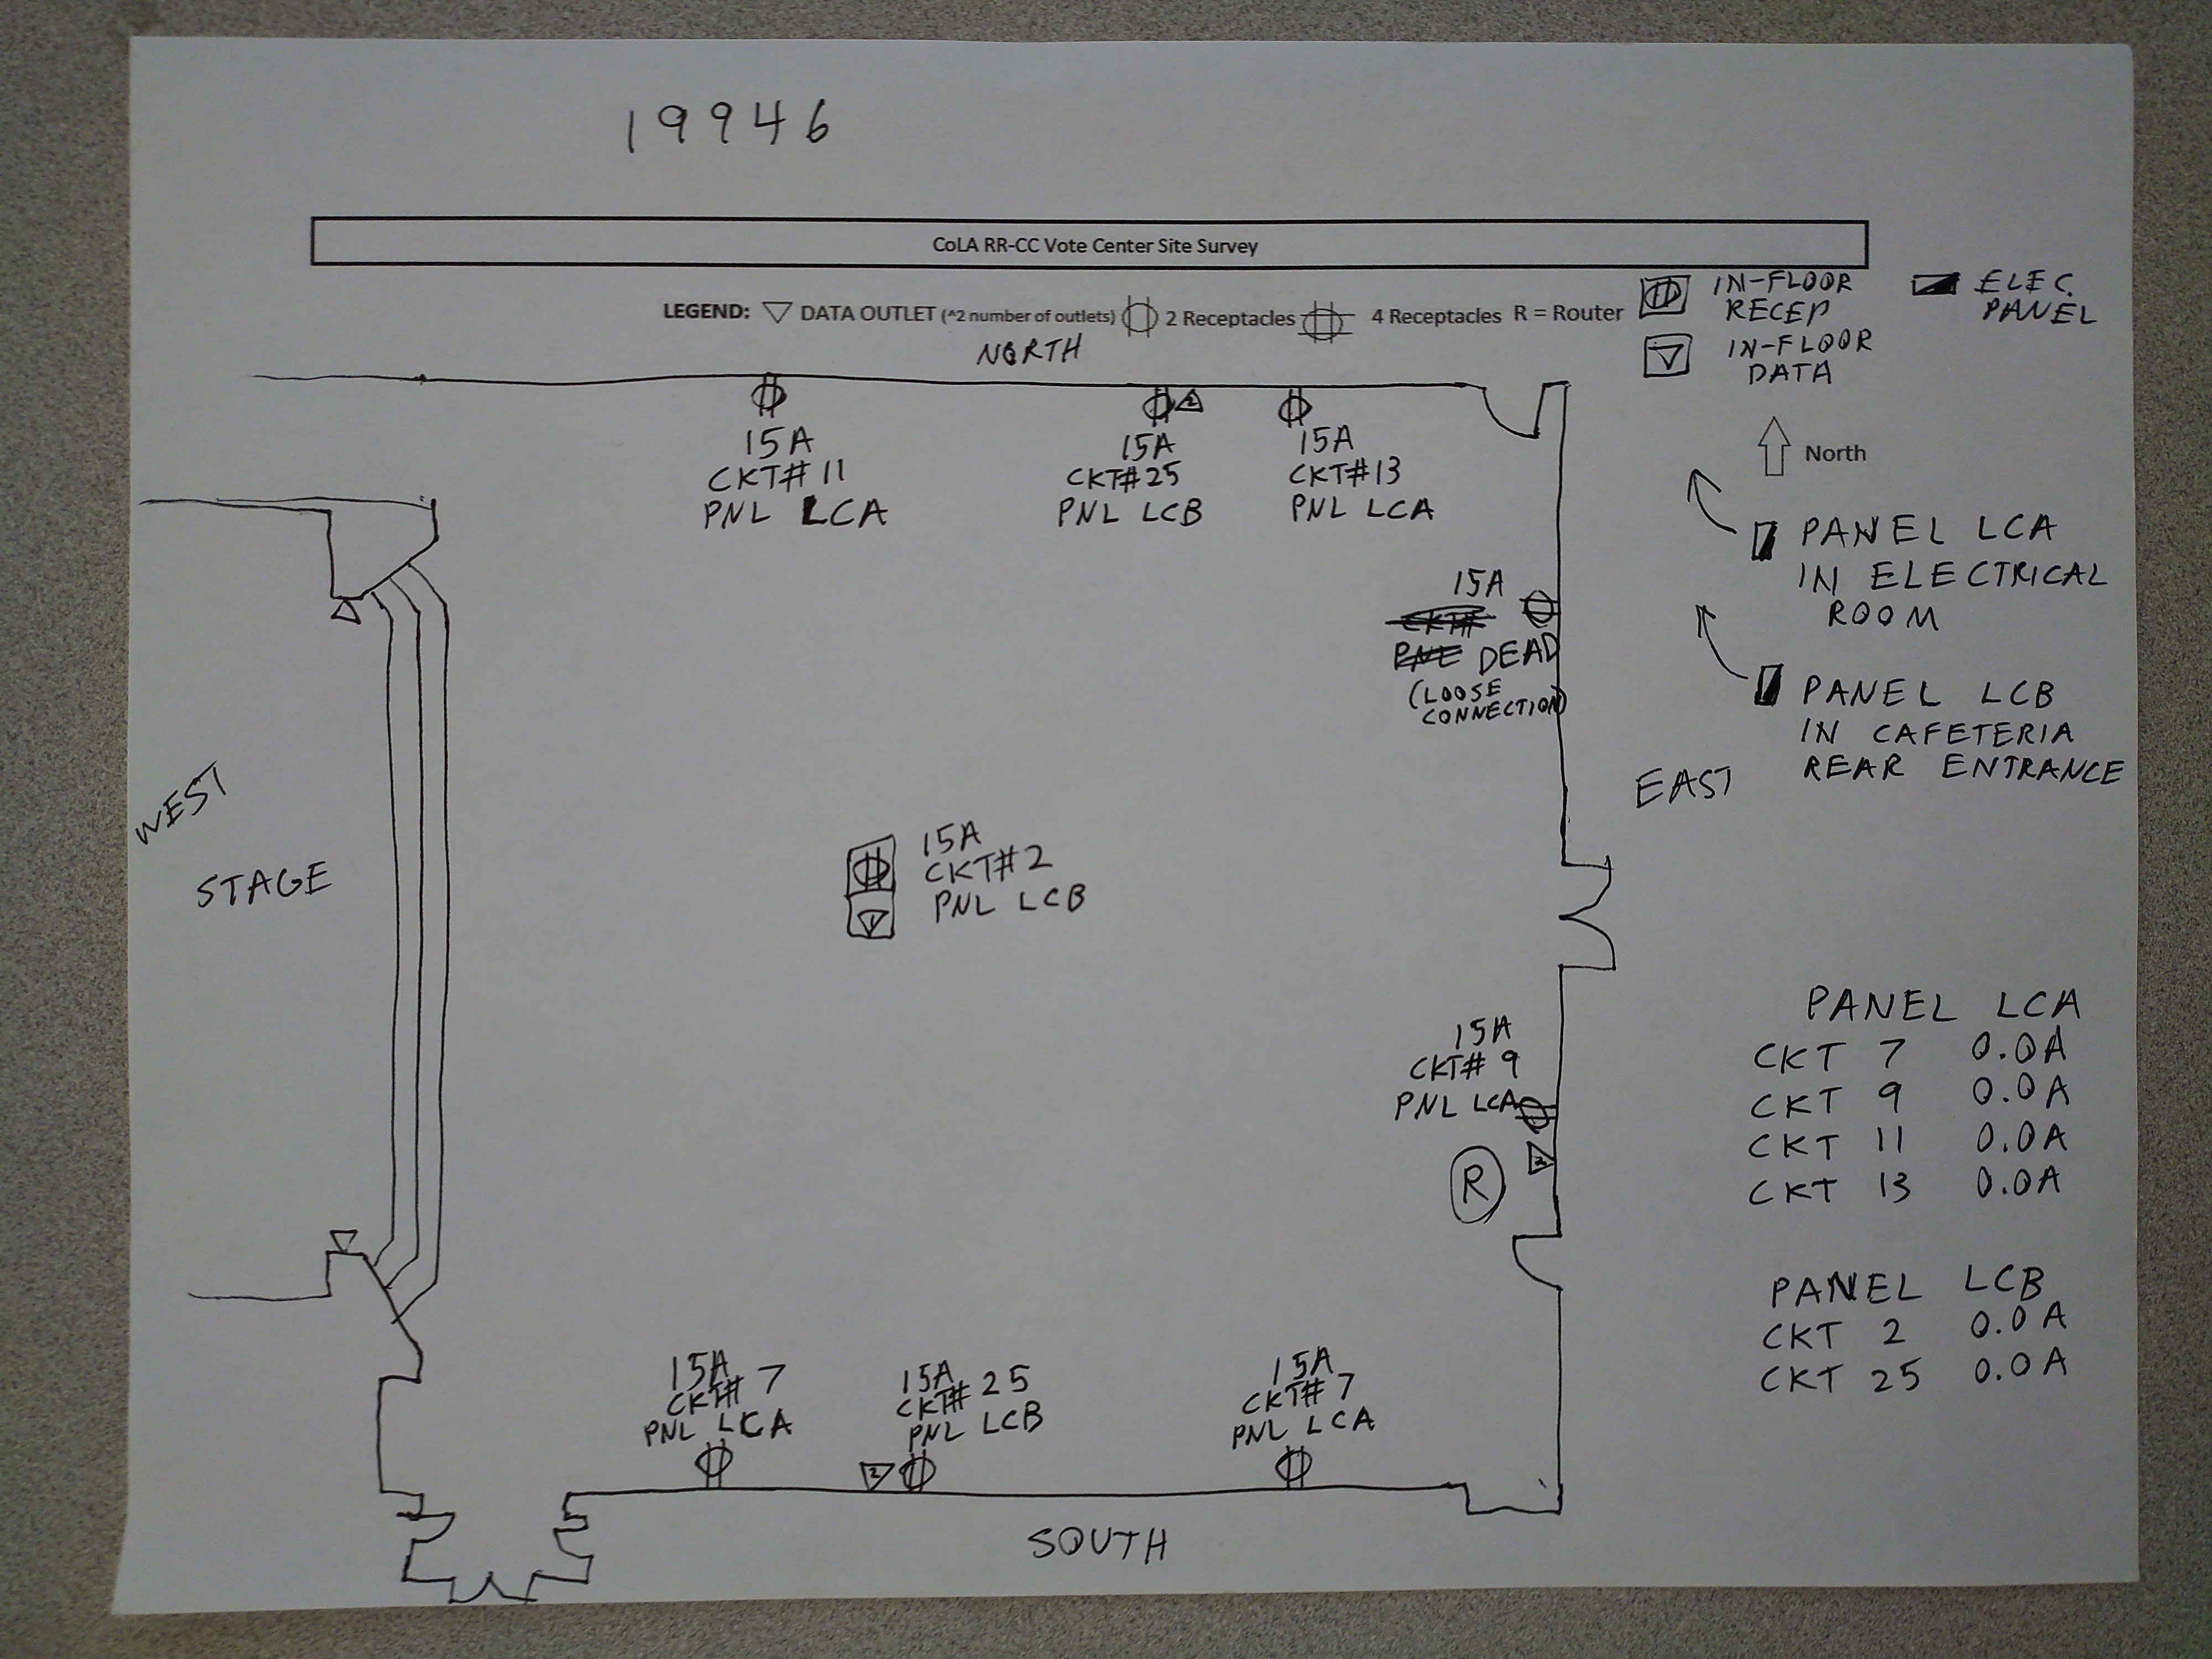 19946
CoLA RR-CC Vote Center Site Survey
LEGEND: DATA OUTLET (^2 number of outlets) 2 Receptacles 4 Receptacles R = Router
IN-FLOOR
RECEP
ELEC.
PANEL
IN-FLOOR
DATA
NORTH
North
15A
CKT# 11
PNL LCA
15A
CKT#25
PNL LCB
2
15A
CKT#13
PNL LCA
PANEL LCA
IN ELECTRICAL
ROOM
15A
CKT#
PNL DEAD
(LOOSE
CONNECTION)
PANEL LCB
IN CAFETERIA
REAR ENTRANCE
EAST
WEST
STAGE
15A
CKT#2
PNL LCB
1
15A
CKT# 9
PNL LCA
2
R
PANEL LCA
CKT 7 0.0A
CKT 9 0.0A
CKT 11 0.0A
CKT 13 0.0A
PANEL LCB
CKT 2 0.0A
CKT 25 0.0A
15A
CKT# 7
PNL LCA
15A
CKT# 25
PNL LCB
2
15A
CKT# 7
PNL LCA
SOUTH